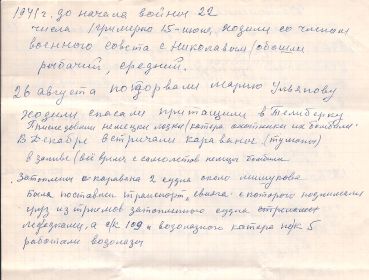 1941 г. до начала войны 22
числа примерно 15-июня, ходили со членом
военного совета с Николаевым обошли
рыбачий, средний.
26 августа подорвали Марию Ульянову
ходили спасали притащили в Териберку
немецки лодки (катера охотники их бомбили.
В Декабре встречали караваны (туманы)
в заливе (всё время с самолетов немцы бомбили
Затоплены с каравана 2 судна около мишукова
была поставлен транспорт, с которого поднимали
груз из трюмов затопленного судна
лебедками, а с/к 109 и водолазного катера 5
работали водолазы